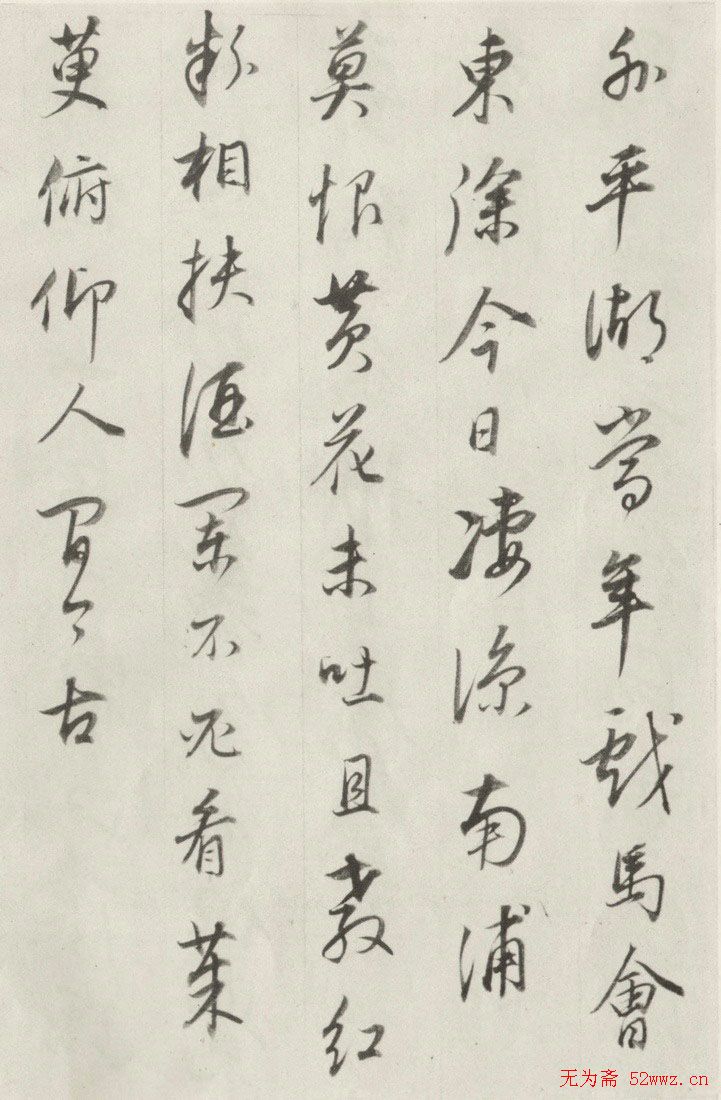 外平湖當年戲馬會
東徐今日淒涼南浦
莫恨黃花未吐且教紅
粉相扶酒闌不必看茱
萸俯仰人間今古
无为斋 52wwz.cn